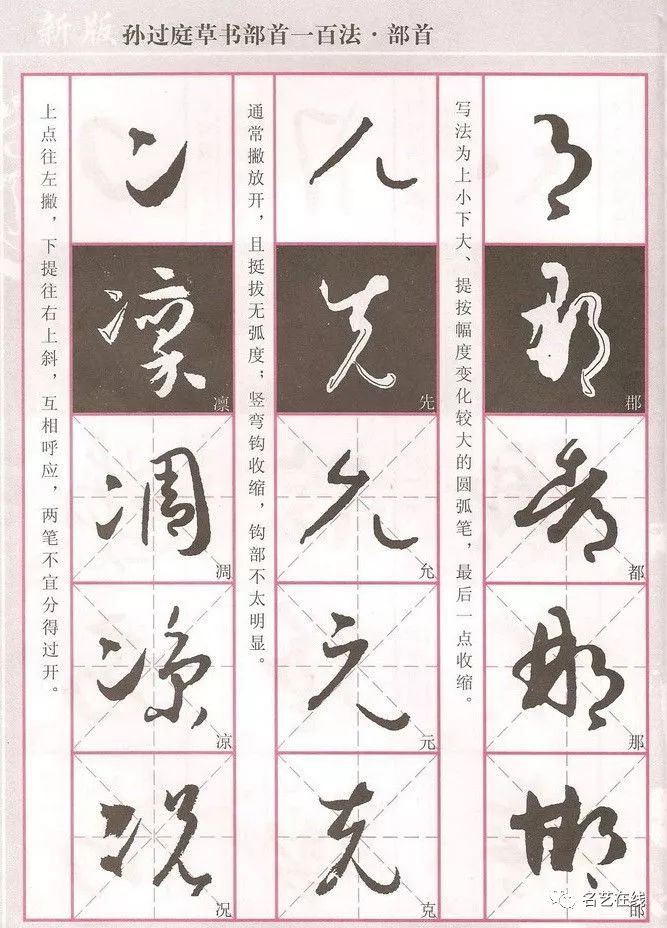 新版 孙过庭草书部首一百法·部首
写法为上小下大、提按幅度变化较大的圆弧笔，最后一点收缩。
郡
都
那
通常撇放开，且挺拔无弧度；竖弯钩收缩，钩部不太明显。
先
允
元
克
上点往左撇，下提往右上斜，互相呼应，两笔不宜分得过开。
凛
凋
凉
况
名艺在线